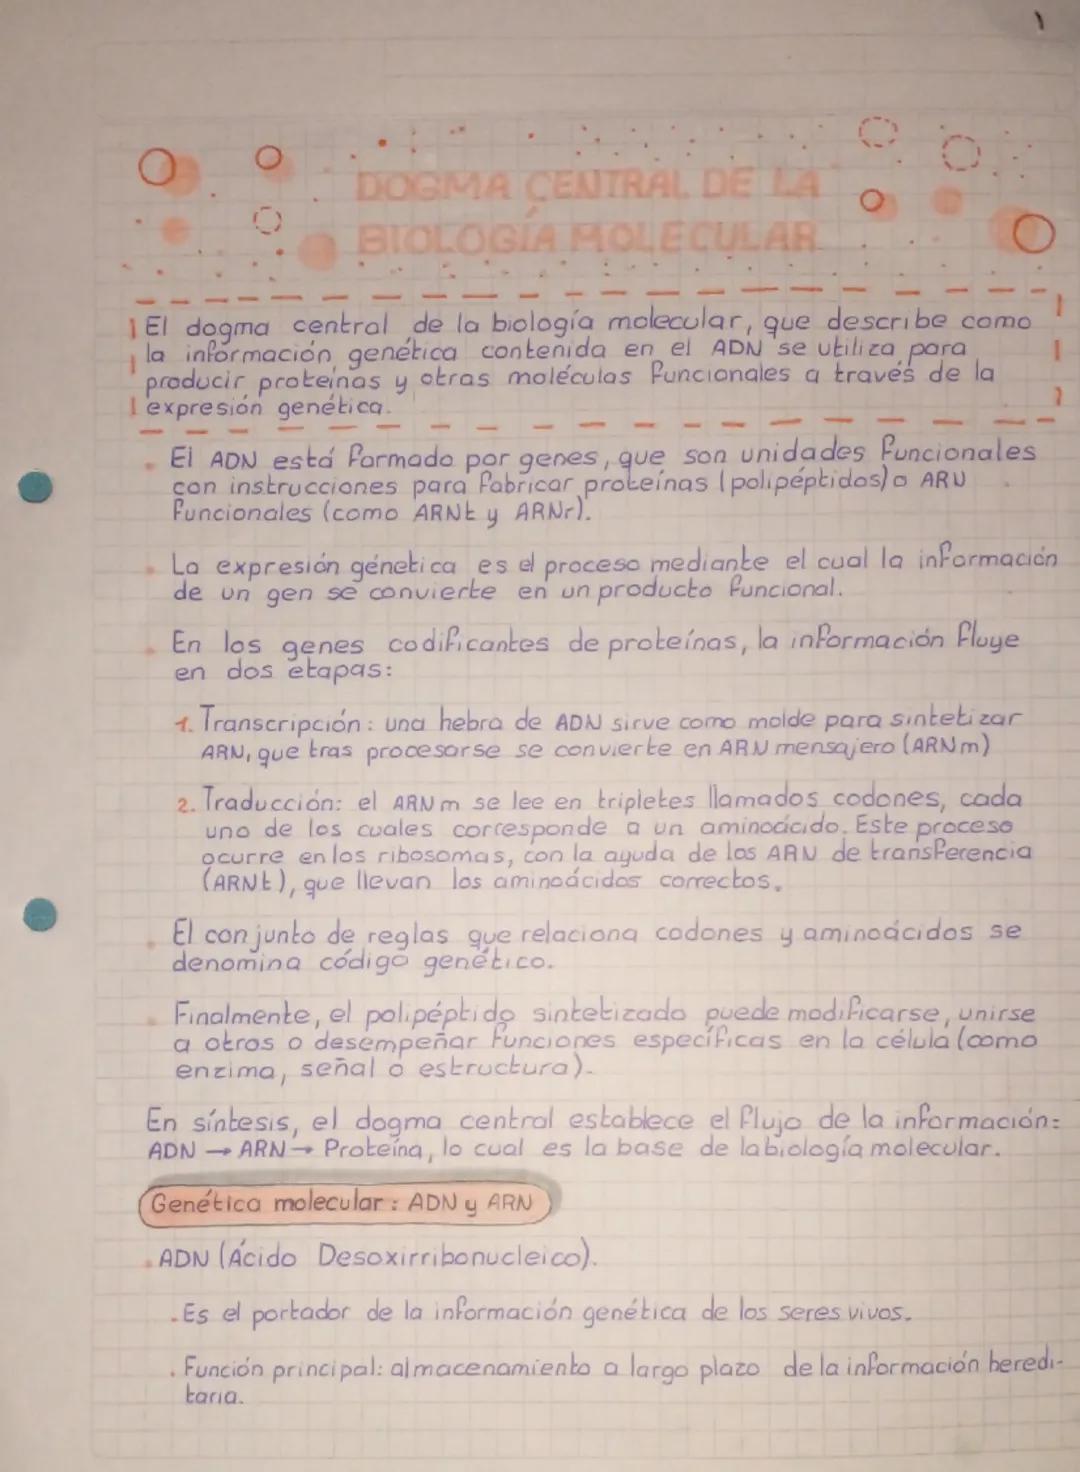 1
DOGMA CENTRAL DE LA
BIOLOGÍA MOLECULAR
El dogma central de la biología molecular, que describe como
la información genética contenida en el ADN se utiliza para
producir proteínas y otras moléculas funcionales a través de la
expresión genética.
El ADN está formado por genes, que son unidades funcionales
con instrucciones para fabricar proteínas (polipéptidos) o ARN
funcionales (como ARNt y ARNr).
La expresión génetica es el proceso mediante el cual la información
de un gen se convierte en un producto funcional.
En los genes codificantes de proteínas, la información fluye
en dos etapas:
1. Transcripción: una hebra de ADN sirve como molde para sintetizar
ARN, que tras procesarse se convierte en ARN mensajero (ARNm)
2. Traducción: el ARNm se lee en tripletes llamados codones, cada
uno de los cuales corresponde a un aminoácido. Este proceso
ocurre en los ribosomas, con la ayuda de los ARN de transferencia
(ARNt), que llevan los aminoácidos correctos.
El conjunto de reglas que relaciona codones y aminoácidos se
denomina código genético.
Finalmente, el polipéptido sintetizado puede modificarse, unirse
a otros o desempeñar funciones específicas en la célula (como
enzima, señal o estructura).
En síntesis, el dogma central establece el flujo de la información:
ADN → ARN → Proteína, lo cual es la base de la biología molecular.
Genética molecular: ADN y ARN
ADN (Ácido Desoxirribonucleico).
Es el portador de la información genética de los seres vivos.
Función principal: almacenamiento a largo plazo de la información heredi-
taria.